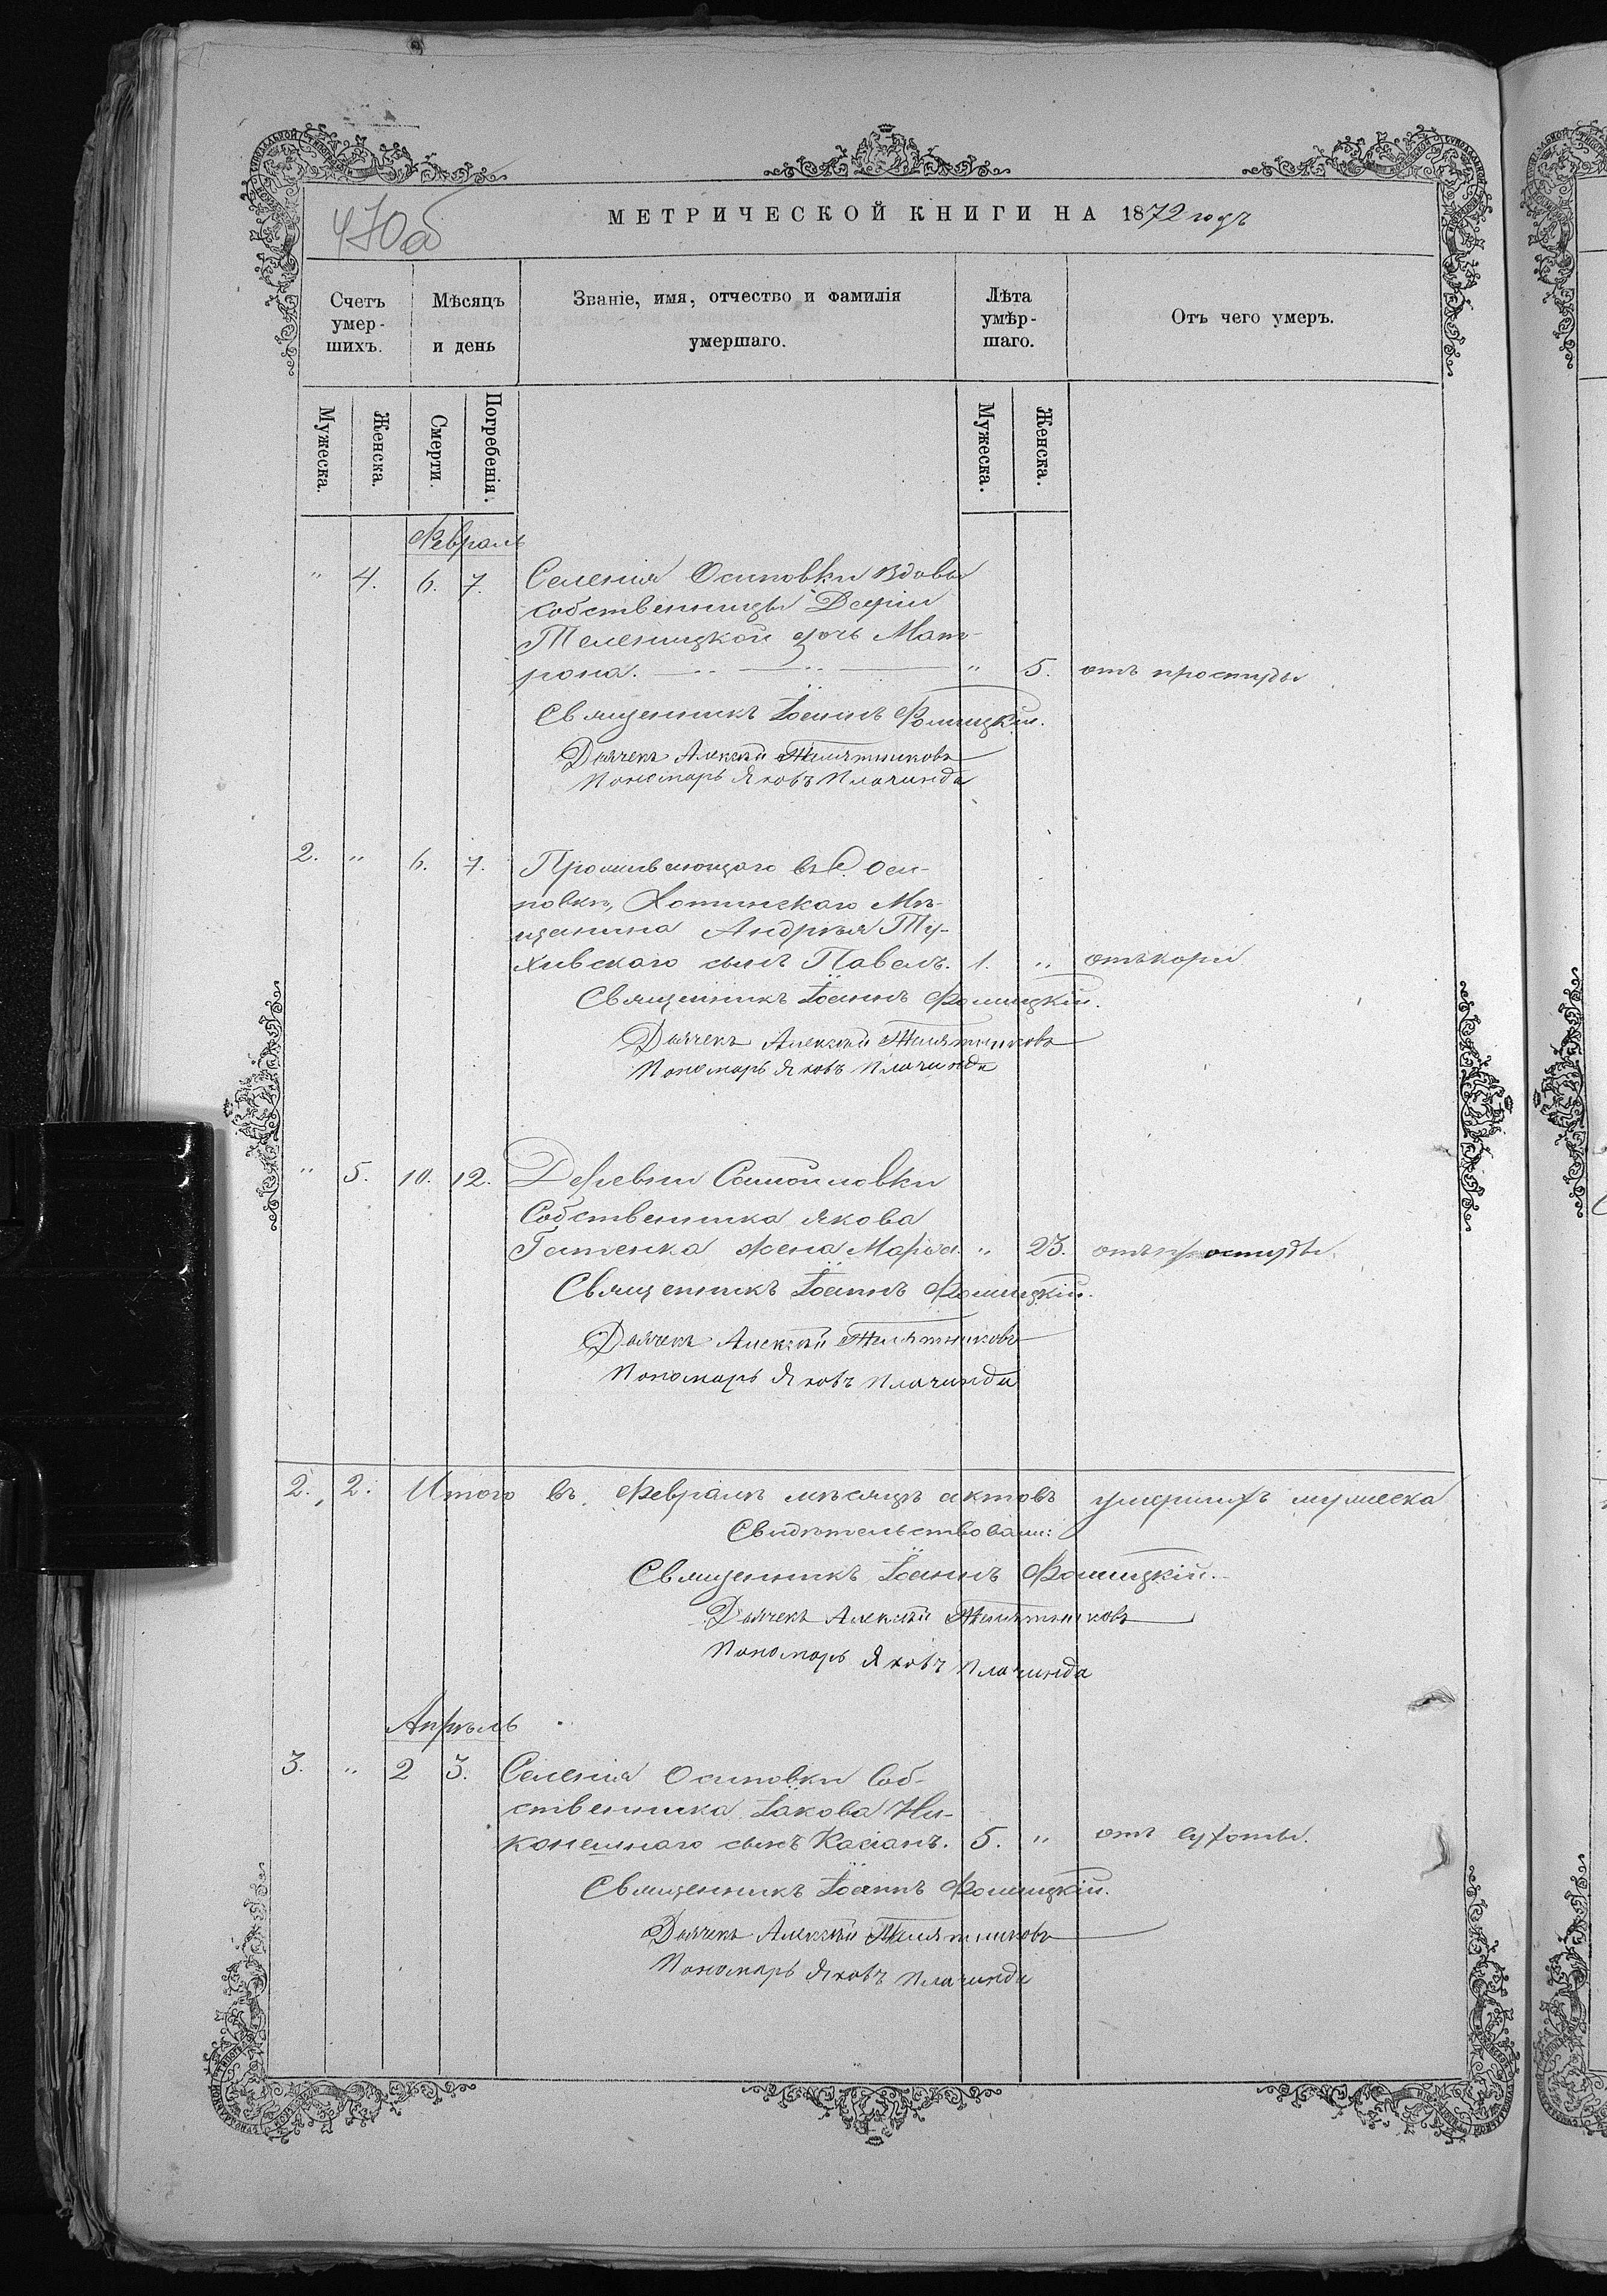 470об
МЕТРИЧЕСКОЙ КНИГИ НА 1872 годъ
Счетъ умер-шихъ.
Мѣсяцъ и день
Званіе, имя, отчество и фамилія умершаго.
Лѣта умѣр-шаго.
Отъ чего умеръ.
Мужеска.
Женска.
Смерти.
Погребенія.
Мужеска.
Женска.
Февраль
" 4. 6. 7. Селенія Осиповки вдовы
собственницы
Теленицкой дочь Мат-
рона. " 5. отъ простуды
Священникъ Іоаннъ Фомицкій.
Дьячекъ Алексѣй
Пономарь Яковъ Плачинда
2. " 6. 7. Проживающаго въ С. Оси-
повкѣ, Хотинскаго Мѣ-
щанина Андрея Ту-
хивскаго сынъ Павелъ. 1. " отъ кори
Священникъ Іоаннъ Фомицкій.
Дьячекъ Алексѣй
Пономарь Яковъ Плачинда
" 5. 10. 12. Деревни Самойловки
Собственника Якова
жена Марія " 23. отъ простуды.
Священникъ Іоаннъ Фомицкій.
Дьячекъ Алексѣй
Пономарь Яковъ Плачинда
2. 2. Итого въ Февралѣ мѣсяцѣ актовъ умершихъ мужеска
Свидѣтельствовали:
Священникъ Іоаннъ Фомицкій.
Дьячекъ Алексѣй
Пономарь Яковъ Плачинда
Апрѣль
3. " 2 3. Селенія Осиповки Соб-
ственника Іакова Ни-
конешнаго сынъ Касіанъ. 5. " отъ сухоты.
Священникъ Іоаннъ Фомицкій.
Дьячекъ Алексѣй
Пономарь Яковъ Плачинда